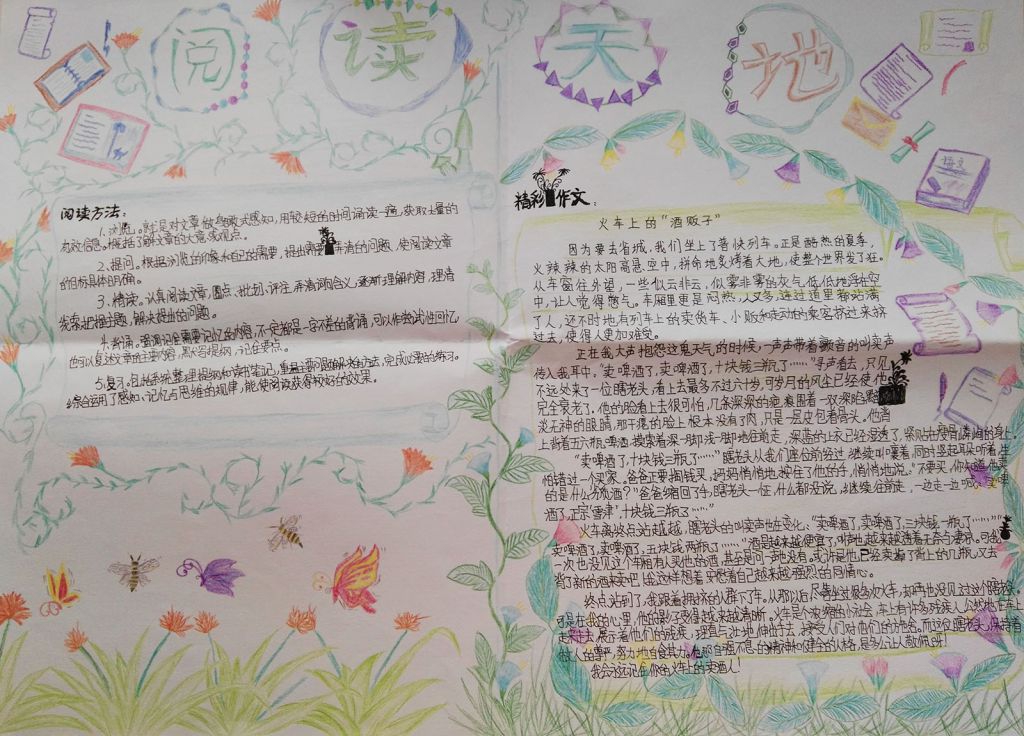 阅读天地
语文
阅读方法：
1.浏览。就是对文章做鸟瞰式感知，用较短的时间诵读一遍，获取大量的
有效信息。概括了解文章的大意或观点。
2、提问。根据浏览的印象和自己的需要，提出需要弄清的问题，使阅读文章
的目标具体的明确。
3、精读。认真阅读文章，圈点、批划、评注，弄清词句含义，逐渐理解内容，理清
线索，把握主题，解决提出的问题。
需要记忆的内容，不一定都是一字不差的背诵，可以作尝试性回忆
的可以复述文章的主要内容，
5.复习。整理提纲和读书笔记，完成必要的练习。
综合运用了感知、记忆与思维的规律，能使阅读获得较好的效果。
精彩作文：
火车上的“酒贩子”
因为要去省城，我们坐上了普快列车。正是酷热的夏季，
火辣辣的太阳高悬空中，拼命地炙烤着大地，使整个世界发了狂。
从车窗往外望，一些似云非云，似雾非雾的灰气低低地浮在空
中，让人觉得憋气。车厢里更是闷热，人又多，连过道里都站满
了人，还不时地有列车上的卖货车、小贩和走动的乘客挤过来挤
过去，使得人更加难受。
正在我大声抱怨这鬼天气的时候，一声声带着颤音的叫卖声
传入我耳中。“卖啤酒了，卖啤酒了，十块钱三瓶了……”寻声看去，只见
不远处来了一位瞎老头，看上去最多不过六十岁，可岁月的风尘已经使他
完全衰老了。他的脸看上去很可怕，几条深深的疤痕围着一双深陷
炎无神的眼睛，那干瘪的脸上根本没有了肉，只是一层皮包着骨头。他肩
上背着五六瓶啤酒，摸索着深一脚浅一脚地往前走，深蓝的上衣已经湿透了，紧贴在瘦骨嶙峋的身上。
“卖啤酒了，十块钱三瓶了……”瞎老头从我们座位前经过，继续叫嚷着，同时竖起耳朵听着，生
怕错过一个买家。爸爸正要掏钱买，妈妈悄悄地按住了他的手，悄悄地说。“不要买，你知道他卖
的是什么伪劣酒？”爸爸缩回了手，瞎老头一怔，什么都没说，继续往前走，一边走一边喊。“卖啤
酒了，正宗‘雪津’，十块钱三瓶了……”
火车离终点站越近，瞎老头的叫卖声也在变化，“卖啤酒了，卖啤酒了，三块钱一瓶了……”
“卖啤酒了，卖啤酒了，五块钱两瓶了……”酒是越来越便宜了，叫声也越来越透着无奈与凄凉。可我
一次也没见这个车厢有人买他的酒，甚至是问一声也没有。或许是他已经卖掉了背上的几瓶，又去
当了新的酒来卖吧！我这样想着，来慰藉自己越来越强烈的同情心。
终点站到了，我跟着拥挤的人群下车。从那以后，尽管坐过很多次火车，却再也没见过这个瞎老头。
可是在我的心里，他的影子变得越来越清晰。火车是个浓缩的小社会，车上有许多残疾人公然地在车上
走来走去，展示着他们的残疾，理直气壮地伸出手去，接受人们对他们的施舍。而这位瞎老头，保持着
做人的尊严，努力地自食其力。他那自强不息的精神和健全的人格，是多么让人敬佩呀！
我会永远记住你的，火车上的卖酒人！